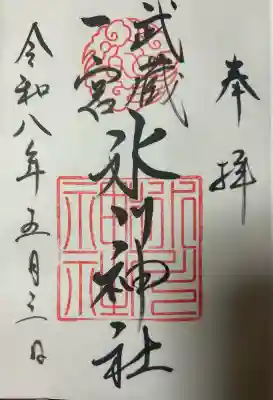 奉拝
武蔵一宮
氷川神社
令和八年五月三日